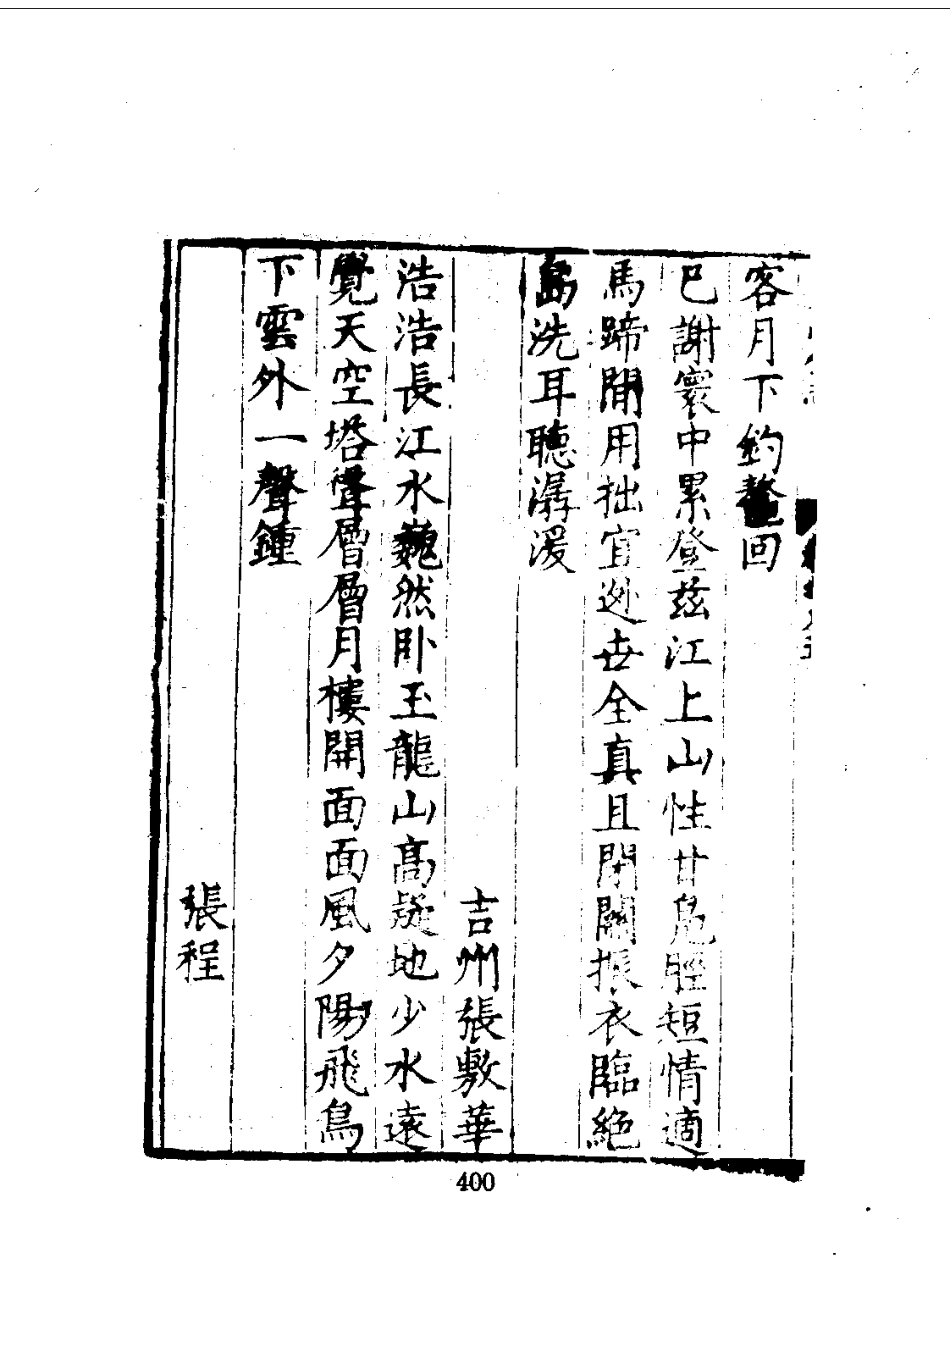 客月下釣鰲回
已謝寰中累登兹江上山性甘鳧脛短情適
馬蹄間用拙宜逊世全真且閉關振衣臨絶
島洗耳聽潺湲
吉州張敷華
浩浩長江水巍然卧玉龍山高疑地少水遠
覺天空塔聳層層月樓開面面風夕陽飛鳥
下雲外一聲鍾
張程
400